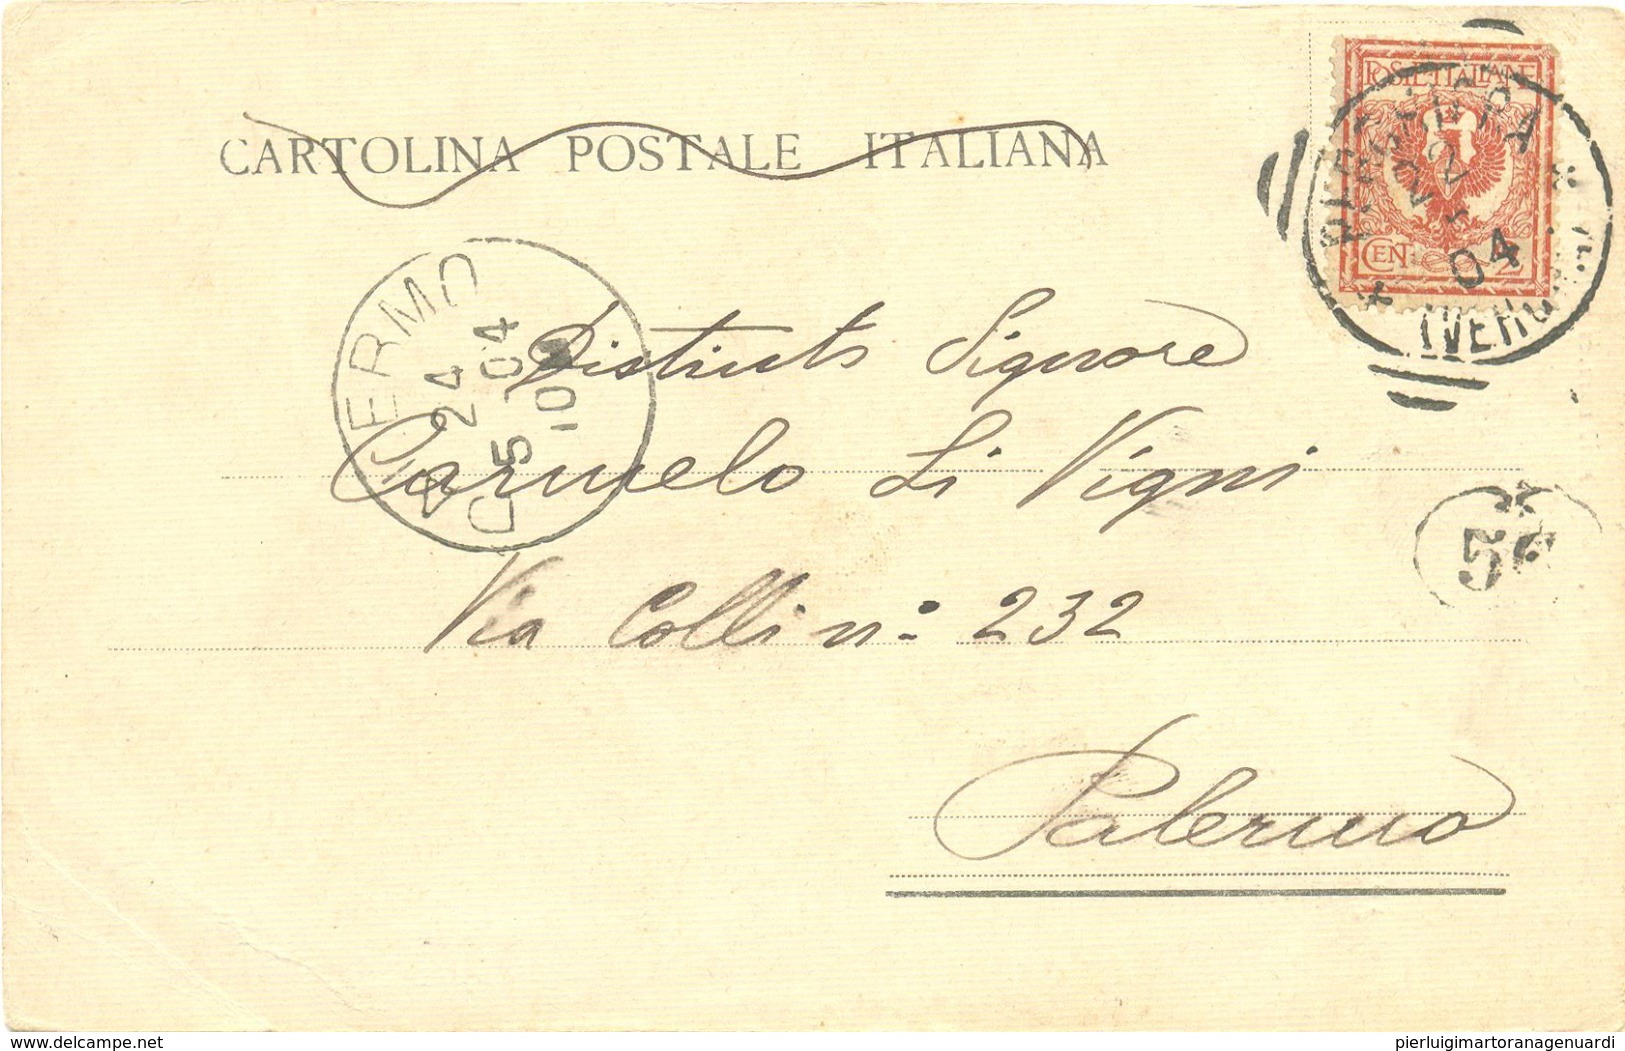 CARTOLINA POSTALE ITALIANA
POSTE ITALIANE
CENT. 2
PESCHIERA
22 5
04
(VERONA)
PALERMO
24
5 04
10
Distinto Signore
Carmelo Li Vigni
Via Colli n°. 232
Palermo
56
www.delcampe.net
pierluigimartoranagenuardi